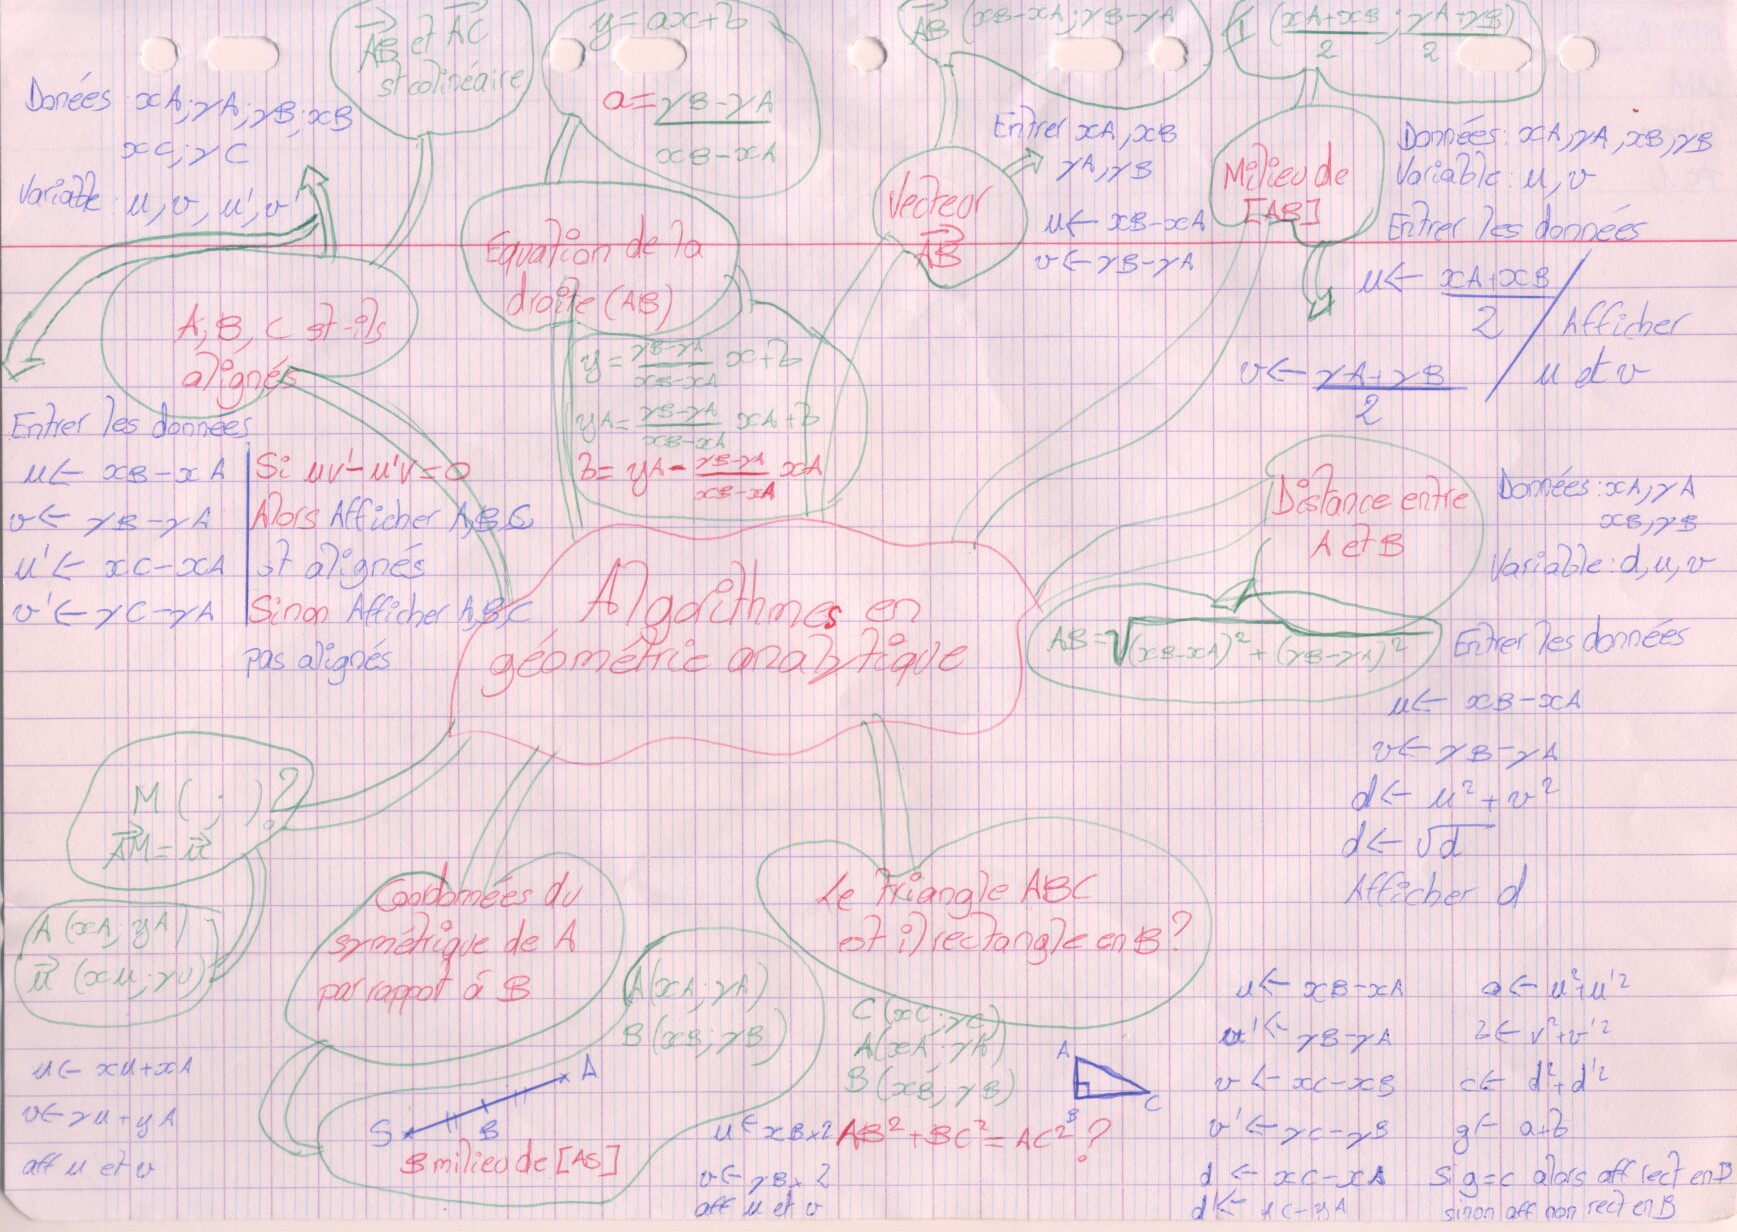 Algorithmes en
géométrie analytique
AB et AC
st colinéaire
Donées xA; yA; yB; xB
xC; yC
Variable: u, v, u', v'
A, B, C st-ils
alignés
Entrer les données
u ← xB - xA
v ← yB - yA
u' ← xC - xA
v' ← yC - yA
Si uv' - u'v = 0
Alors Afficher A,B,C
st alignés
Sinon Afficher A,B,C
pas alignés
y = ax + b
a = (yB - yA)/(xB - xA)
Equation de la
droite (AB)
y = (yB-yA)/(xB-xA) x + b
yA = (yB-yA)/(xB-xA) xA + b
b = yA - (yB-yA)/(xB-xA) xA
AB (xB-xA; yB-yA
Vecteur
AB
Entrer xA, xB
yA, yB
u ← xB - xA
v ← yB - yA
I (xA+xB)/2 ; (yA+yB)/2)
Milieu de
[AB]
Données: xA, yA, xB, yB
Variable: u, v
Entrer les données
u ← (xA+xB)/2
v ← (yA+yB)/2
Afficher
u et v
Distance entre
A et B
AB = √(xB-xA)² + (yB-yA)²
Données: xA, yA
xB, yB
Variable: d, u, v
Entrer les données
u ← xB - xA
v ← yB - yA
d ← u² + v²
d ← √d
Afficher d
M ( ; ) ?
AM = u
A (xA; yA)
u (xu; yu)
u ← xu + xA
v ← yu + yA
aff u et v
Coordonnées du
symétrique de A
par rapport à B
A(xA; yA)
B(xB; yB)
S B A
B milieu de [AS]
u ← xB×2
v ← yB×2
aff u et v
Le triangle ABC
est il rectangle en B?
C(xC; yC)
A(xA; yA)
B(xB; yB)
A
B C
AB² + BC² = AC² ?
u ← xB - xA
u' ← yB - yA
v ← xC - xB
v' ← yC - yB
d ← xC - xA
d' ← yC - yA
a ← u²+u'²
b ← v²+v'²
c ← d²+d'²
g ← a+b
Si g=c alors aff rect en B
sinon aff non rect en B